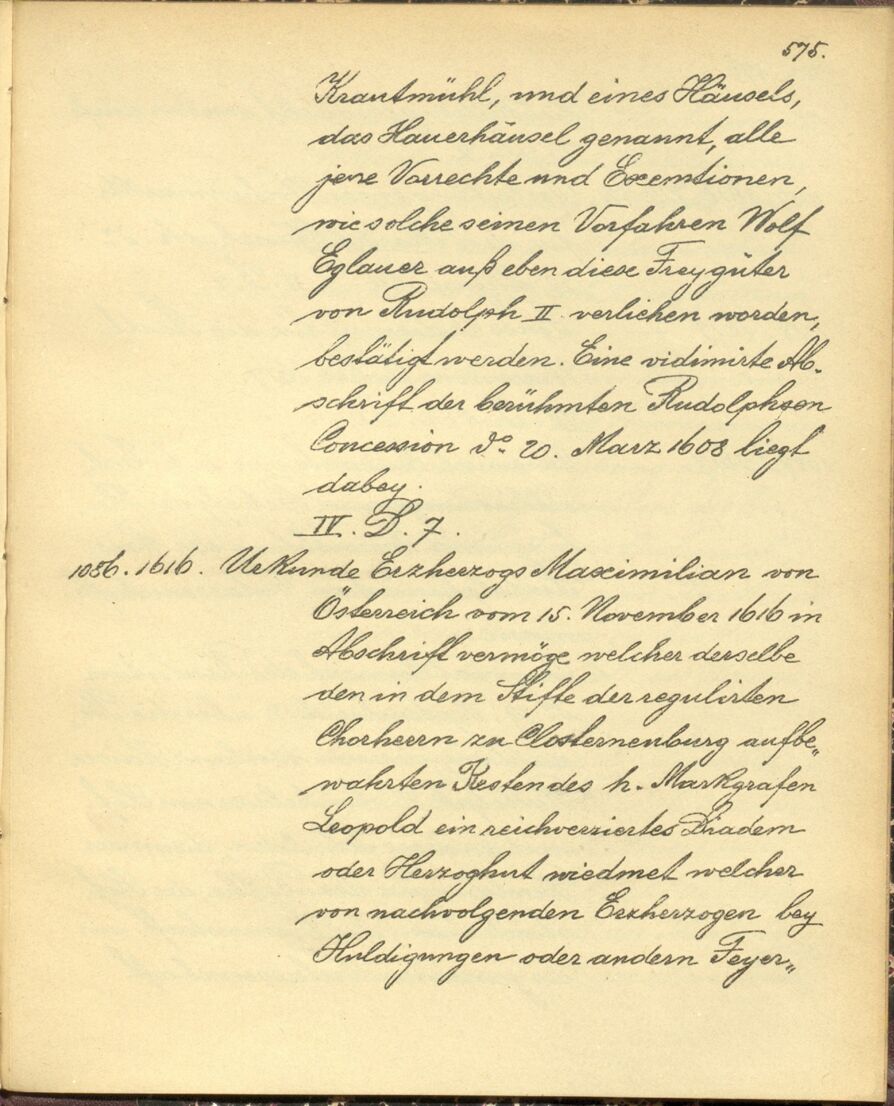 575.
Krautmühl, und eines Häusels,
das Hauerhäusel genannt, alle
jene Vorrechte und Exemtionen,
wie solche seinen Vorfahren Wolf
Eglauer auß eben diese Freygüter
von Rudolph II. verliehen worden,
bestätigt werden. Eine vidimirte Ab-
schrift der berühmten Rudolphsen
Concession do. 20. Marz 1608 liegt
dabey.
IV. D. 7.
1086. 1616. Urkunde Erzherzogs Maximilian von
Österreich vom 15. November 1616 in
Abschrift vermöge welcher derselbe
den in dem Stifte der regulirten
Chorherrn zu Closterneuburg aufbe„
wahrten Resten des h. Markgrafen
Leopold ein reichverziertes Diadem
oder Herzoghut wiedmet welcher
von nachvolgenden Erzherzogen bey
Huldigungen oder andern Feyer„